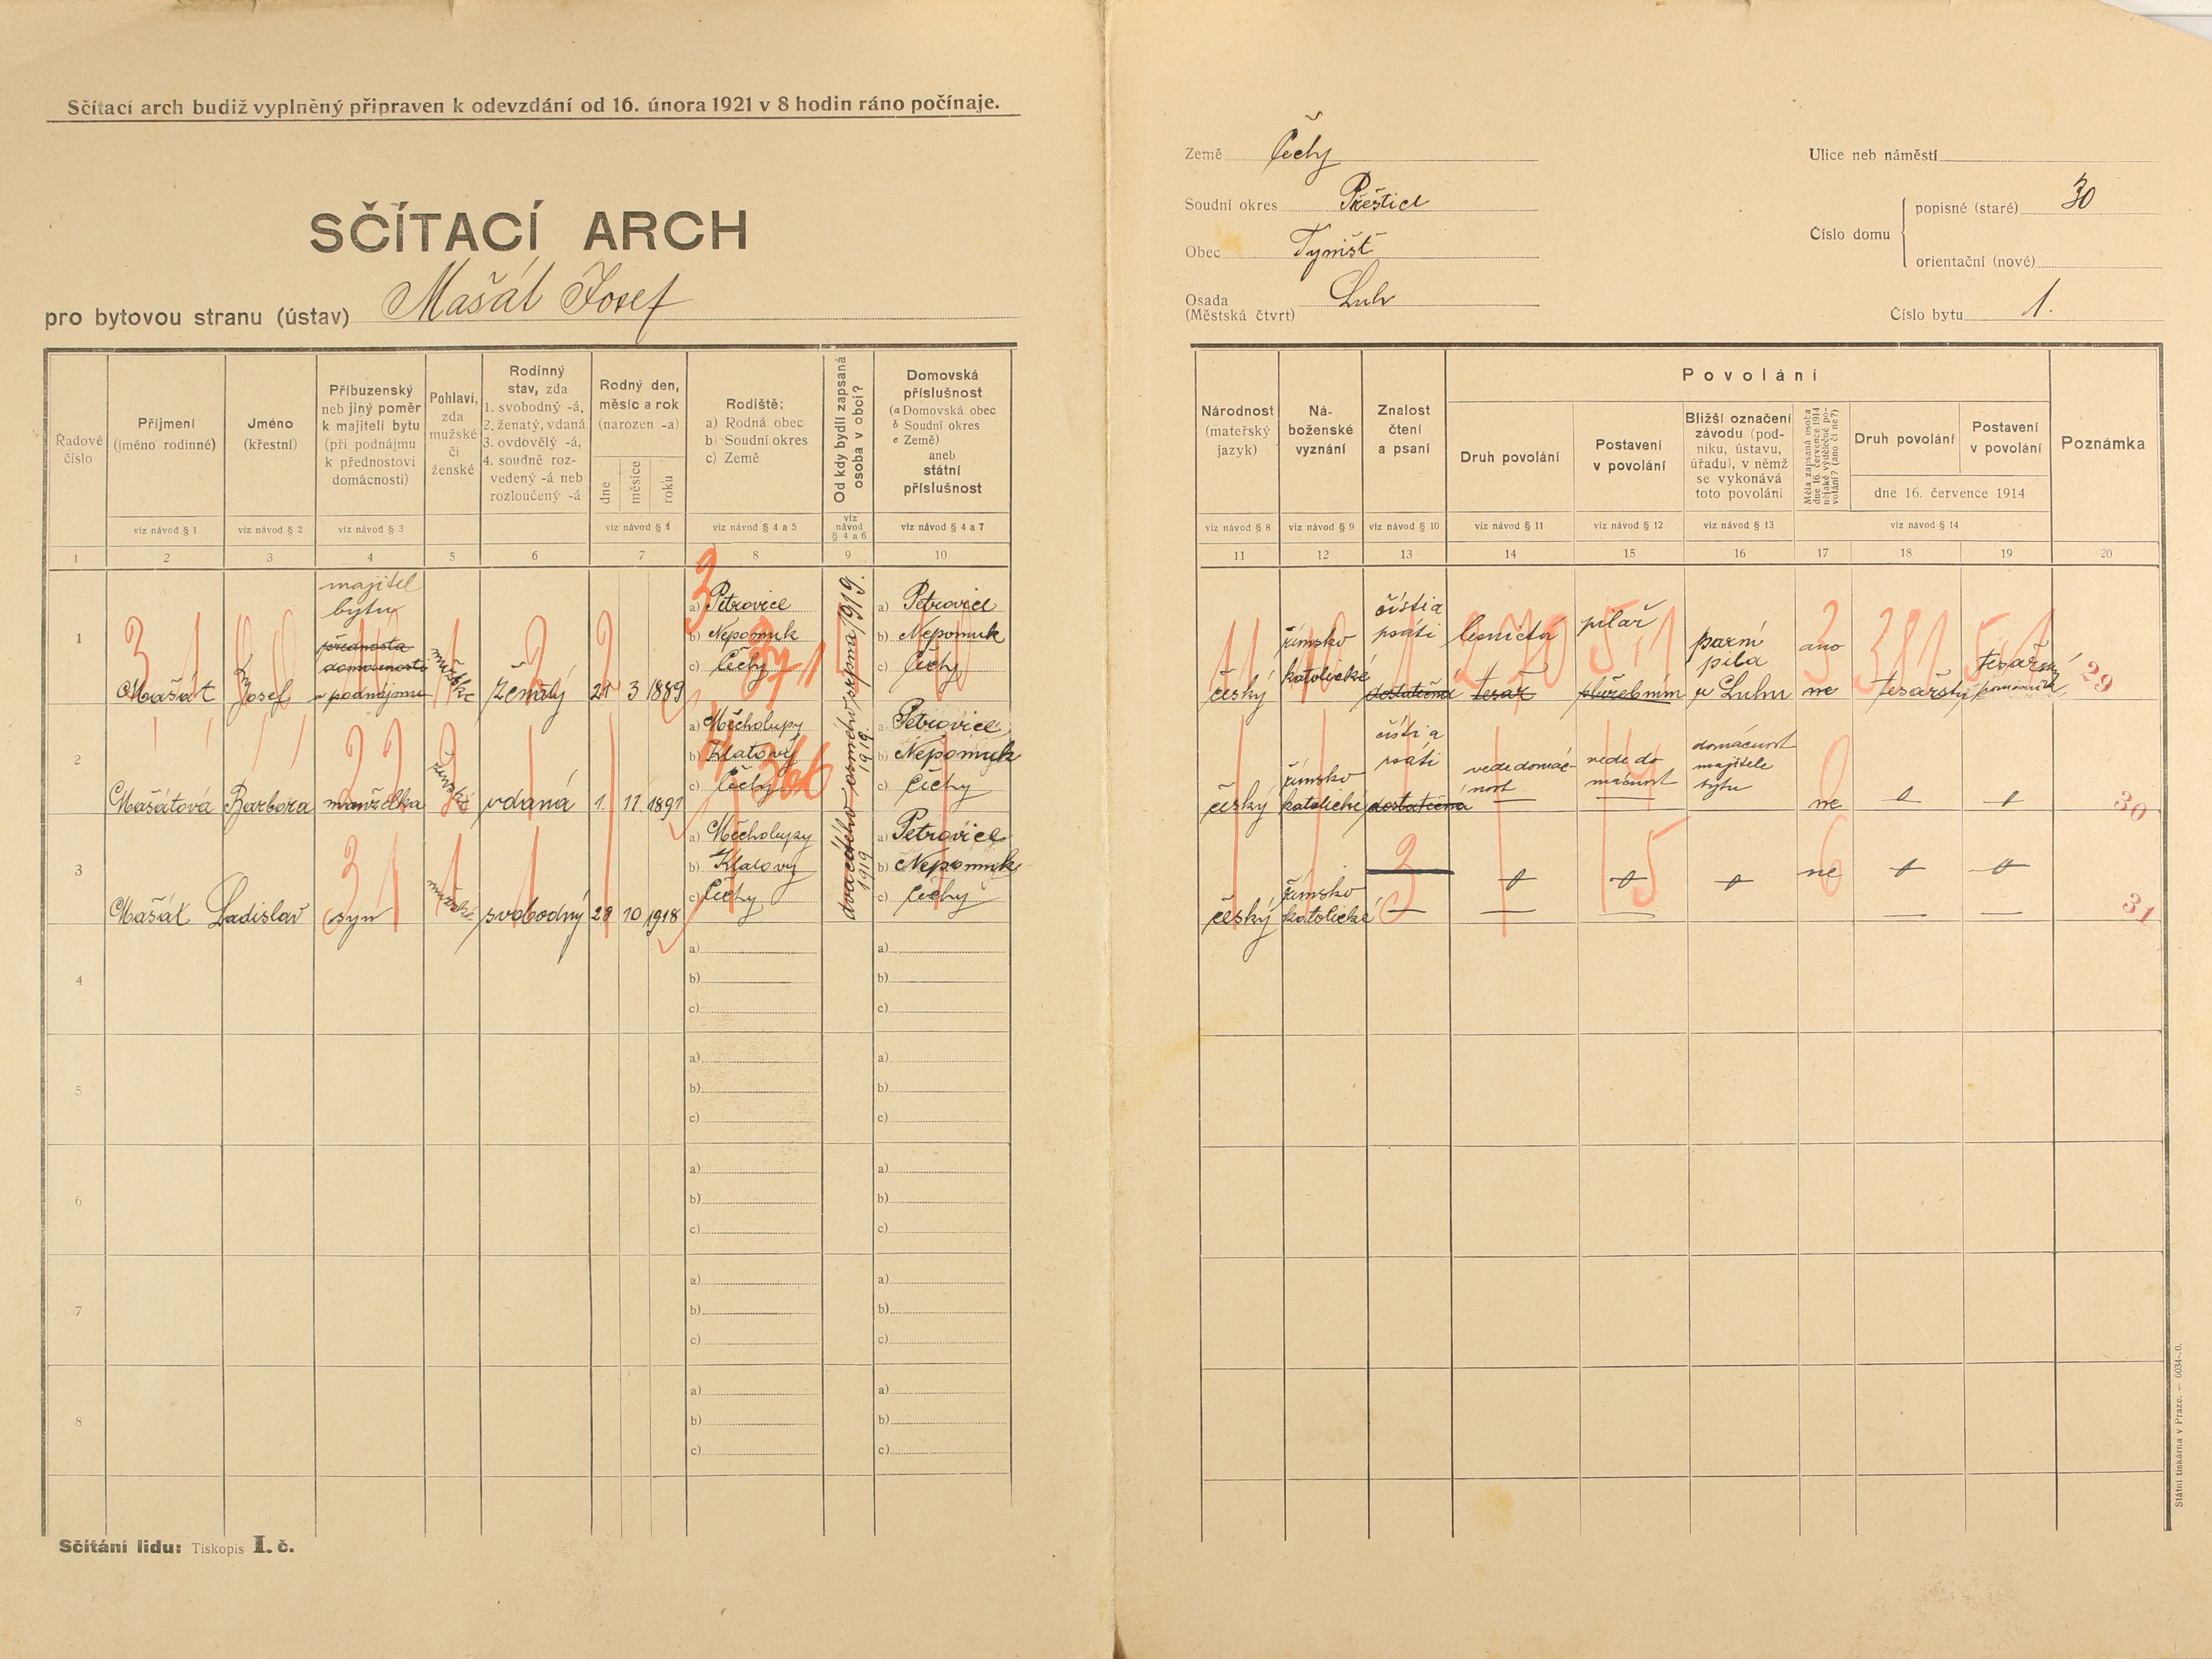 Sčítací arch budiž vyplněný připraven k odevzdání od 16. února 1921 v 8 hodin ráno počínaje.
SČÍTACÍ ARCH
pro bytovou stranu (ústav) Mašát Josef
Země Čechy
Soudní okres Přeštice
Obec Týništ
Osada (Městská čtvrt) Luh
Ulice neb náměstí
Číslo domu
popisné (staré) 30
orientační (nové)
Číslo bytu 1.
Řadové číslo
Příjmení (jméno rodinné)
Jméno (křestní)
Příbuzenský neb jiný poměr k majiteli bytu (při podnájmu k přednostovi domácnosti)
Pohlaví, zda mužské či ženské
Rodinný stav, zda 1. svobodný -á, 2. ženatý, vdaná 3. ovdovělý -á, 4. soudně rozvedený -á neb rozloučený -á
Rodný den, měsíc a rok (narozen -a)
dne měsíce roku
Rodiště: a) Rodná obec b) Soudní okres c) Země
Od kdy bydlí zapsaná osoba v obci?
Domovská příslušnost (a Domovská obec b Soudní okres c Země) aneb státní příslušnost
viz návod § 1
viz návod § 2
viz návod § 3
viz návod § 4
viz návod § 4 a 5
viz návod § 4 a 6
viz návod § 4 a 7
1 2 3 4 5 6 7 8 9 10
Národnost (mateřský jazyk)
Náboženské vyznání
Znalost čtení a psaní
Povolání
Druh povolání
Postavení v povolání
Bližší označení závodu (podniku, ústavu, úřadu), v němž se vykonává toto povolání
Měla zapsaná osoba dne 16. července 1914 nějaké výdělečné povolání? (ano či ne?)
Druh povolání
Postavení v povolání
dne 16. července 1914
Poznámka
viz návod § 8
viz návod § 9
viz návod § 10
viz návod § 11
viz návod § 12
viz návod § 13
viz návod § 14
11 12 13 14 15 16 17 18 19 20
1
Mašát
Josef
majitel
bytu
přednosta
domácnosti
mužské
ženatý
21 3 1889
a) Petrovice
b) Nepomuk
c) Čechy
srpna 1919.
a) Petrovice
b) Nepomuk
c) Čechy
český
římsko
katolické
čísti a
psáti
dostatečná
tesař
pilař
služebním
parní
pila
v Luhu
ano
ne
tesařství
tesařský
pomocník
29
2
Mašátová
Barbora
manželka
ženské
vdaná
1. 11. 1891
a) Měcholupy
b) Klatovy
c) Čechy
dvacátého osmého
1919
a) Petrovice
b) Nepomuk
c) Čechy
český
římsko
katolické
čísti a
psáti
dostatečná
vede domác-
nost
vede do
mácnost
domácnost
majitele
bytu
ne
30
3
Mašát
Ladislav
syn
mužské
svobodný
28 10 1918
a) Měcholupy
b) Klatovy
c) Čechy
1919
a) Petrovice
b) Nepomuk
c) Čechy
český
římsko
katolické
ne
31
4
a)
b)
c)
a)
b)
c)
5
a)
b)
c)
a)
b)
c)
6
a)
b)
c)
a)
b)
c)
7
a)
b)
c)
a)
b)
c)
8
a)
b)
c)
a)
b)
c)
Sčítání lidu: Tiskopis I. č.
Státní tiskárna v Praze. — 6034-20.